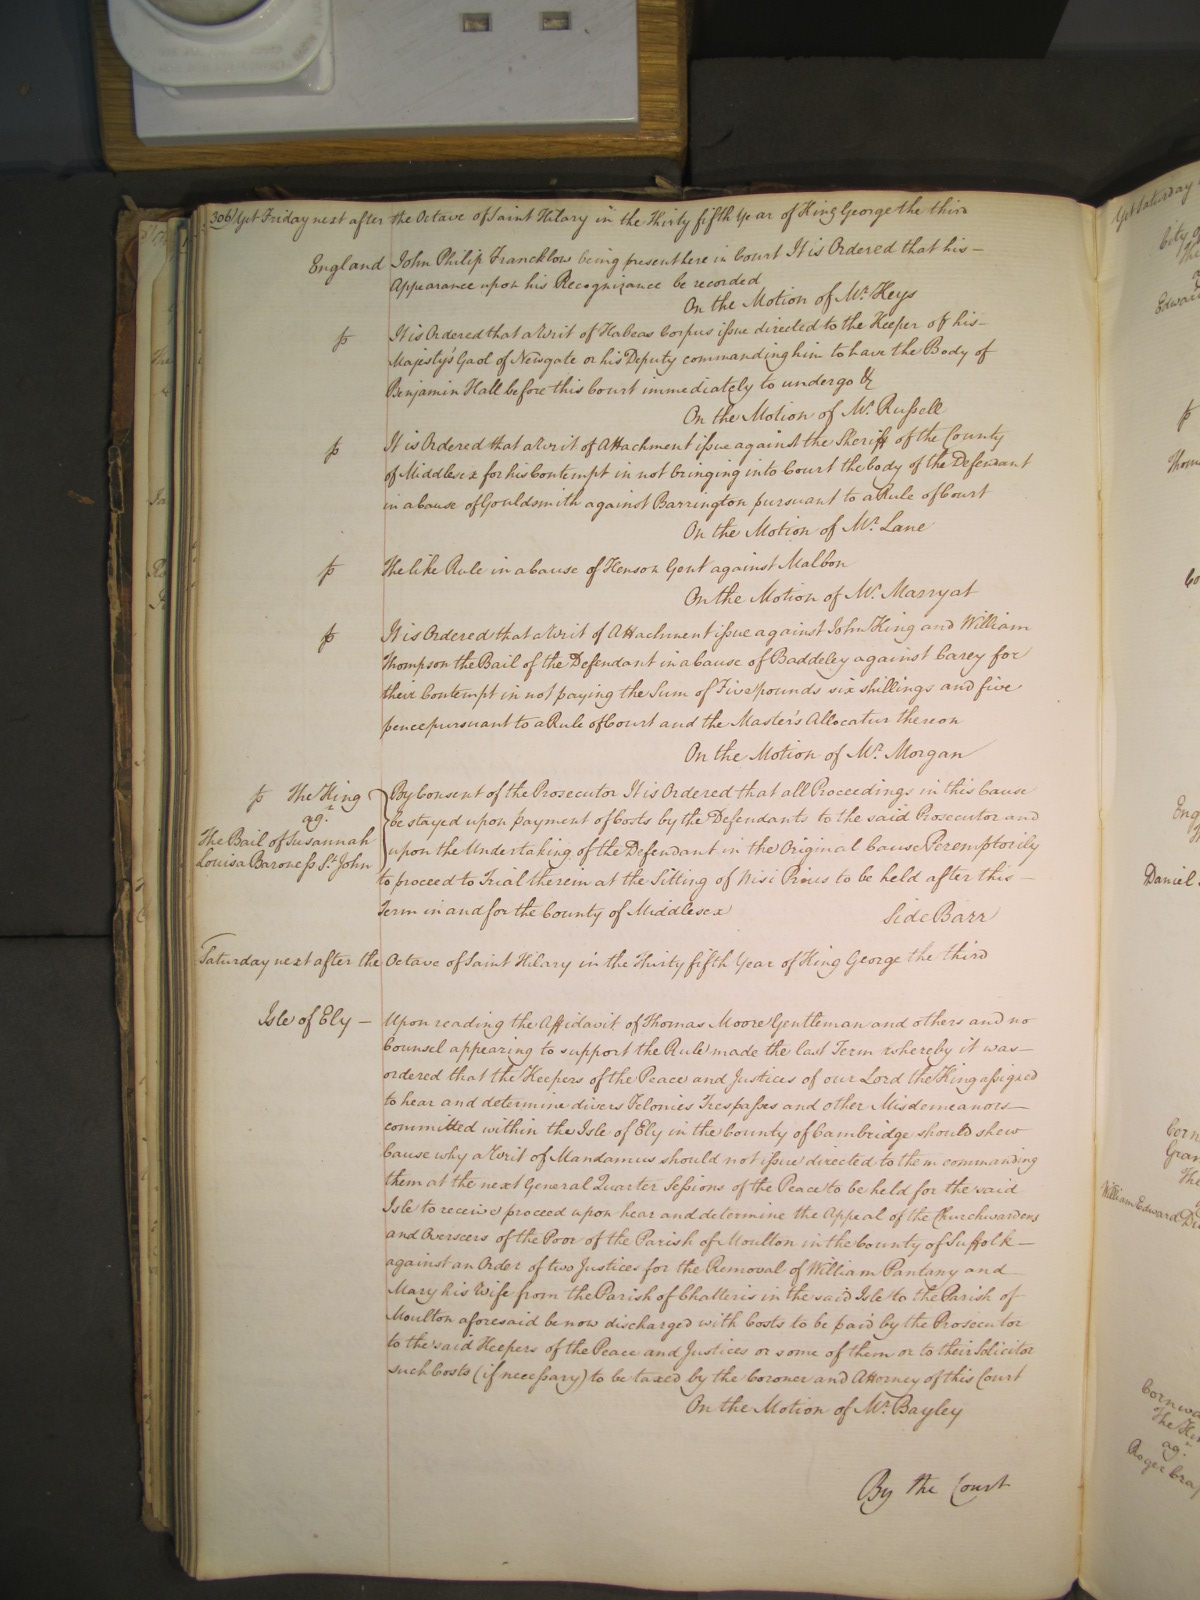 306 Yet Friday next after the Octave of Saint Hilary in the Thirty fifth Year of King George the third
England John Philip Francklow being present here in Court It is Ordered that his
Appearance upon his Recognizance be recorded
On the Motion of Mr. Keys
It is Ordered that a Writ of Habeas Corpus issue directed to the Keeper of his
Majesty's Gaol of Newgate or his Deputy commanding him to have the Body of
Benjamin Hall before this Court immediately to undergo &c
On the Motion of Mr. Russell
It is Ordered that a Writ of Attachment issue against the Sheriff of the County
of Middlesex for his Contempt in not bringing into Court the body of the Defendant
in a Cause of Gouldsmith against Barrington pursuant to a Rule of Court
On the Motion of Mr. Lane
The like Rule in a Cause of Gent against Malbon
On the Motion of Mr. Marryat
It is Ordered that a Writ of Attachment issue against John King and William
Thompson the Bail of the Defendant in a Cause of Baddeley against Carey for
their Contempt in not paying the Sum of Five pounds six shillings and five
pence pursuant to a Rule of Court and the Master's Allocatur thereon
On the Motion of Mr. Morgan
The King
agt.
The Bail of Susannah
Louisa Baroness St. John
By Consent of the Prosecutor It is Ordered that all Proceedings in this Cause
be stayed upon payment of Costs by the Defendants to the said Prosecutor and
upon the Undertaking of the Defendant in the Original Cause Peremptorily
to proceed to Trial therein at the Sitting of Nisi Prius to be held after this
Term in and for the County of Middlesex
Side Barr
Saturday next after the Octave of Saint Hilary in the Thirty fifth Year of King George the third
Isle of Ely — Upon reading the Affidavit of Thomas Moore Gentleman and others and no
Counsel appearing to support the Rule made the last Term whereby it was
ordered that the Keepers of the Peace and Justices of our Lord the King assigned
to hear and determine divers Felonies Trespasses and other Misdemeanors
committed within the Isle of Ely in the County of Cambridge should shew
Cause why a Writ of Mandamus should not issue directed to them commanding
them at the next General Quarter Sessions of the Peace to be held for the said
Isle to receive proceed upon hear and determine the Appeal of the Churchwardens
and Overseers of the Poor of the Parish of Moulton in the County of Suffolk
against an Order of two Justices for the Removal of William Pantany and
Mary his Wife from the Parish of Chatteris in the said Isle to the Parish of
Moulton aforesaid be now discharged with Costs to be paid by the Prosecutor
to the said Keepers of the Peace and Justices or some of them or to their Solicitor
such Costs (if necessary) to be taxed by the Coroner and Attorney of this Court
On the Motion of Mr. Bayley
By the Court
Yet Saturday
Edward
Daniel
William Edward
the
agt.
Roger